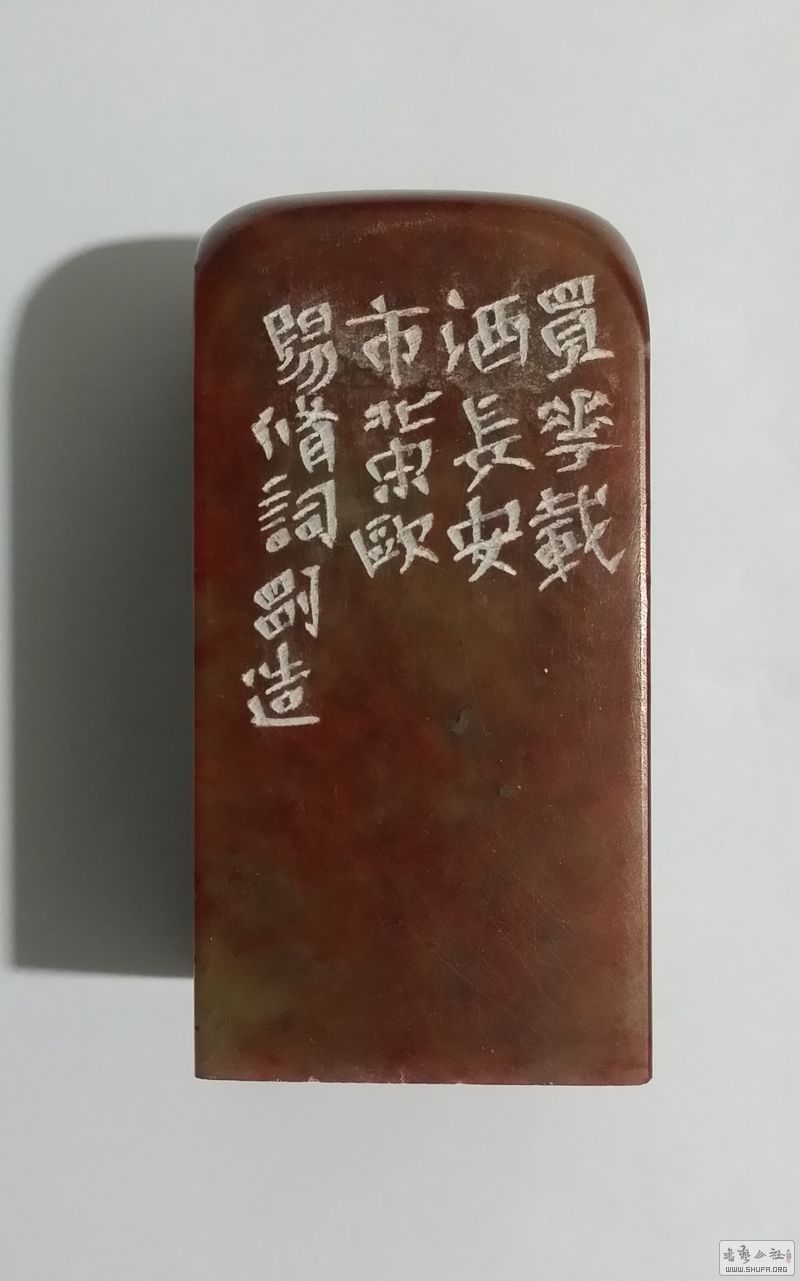 買華載
酒長安
市北宋歐
陽脩詞剛造
書藝公社
WWW.SHUFA.ORG